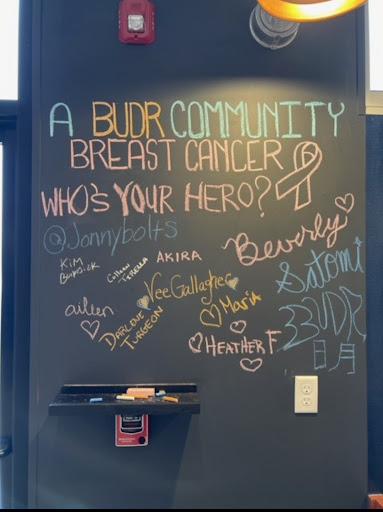 A BUDR COMMUNITY
BREAST CANCER
WHO'S YOUR HERO?
@Jonnybolts
Beverly
KIM
BURDICK
Colleen
TERELLA
AKIRA
Satomi
Vee Gallagher
aileen
Maria
BUDR
DARLENE
TURGEON
HEATHER F
日月